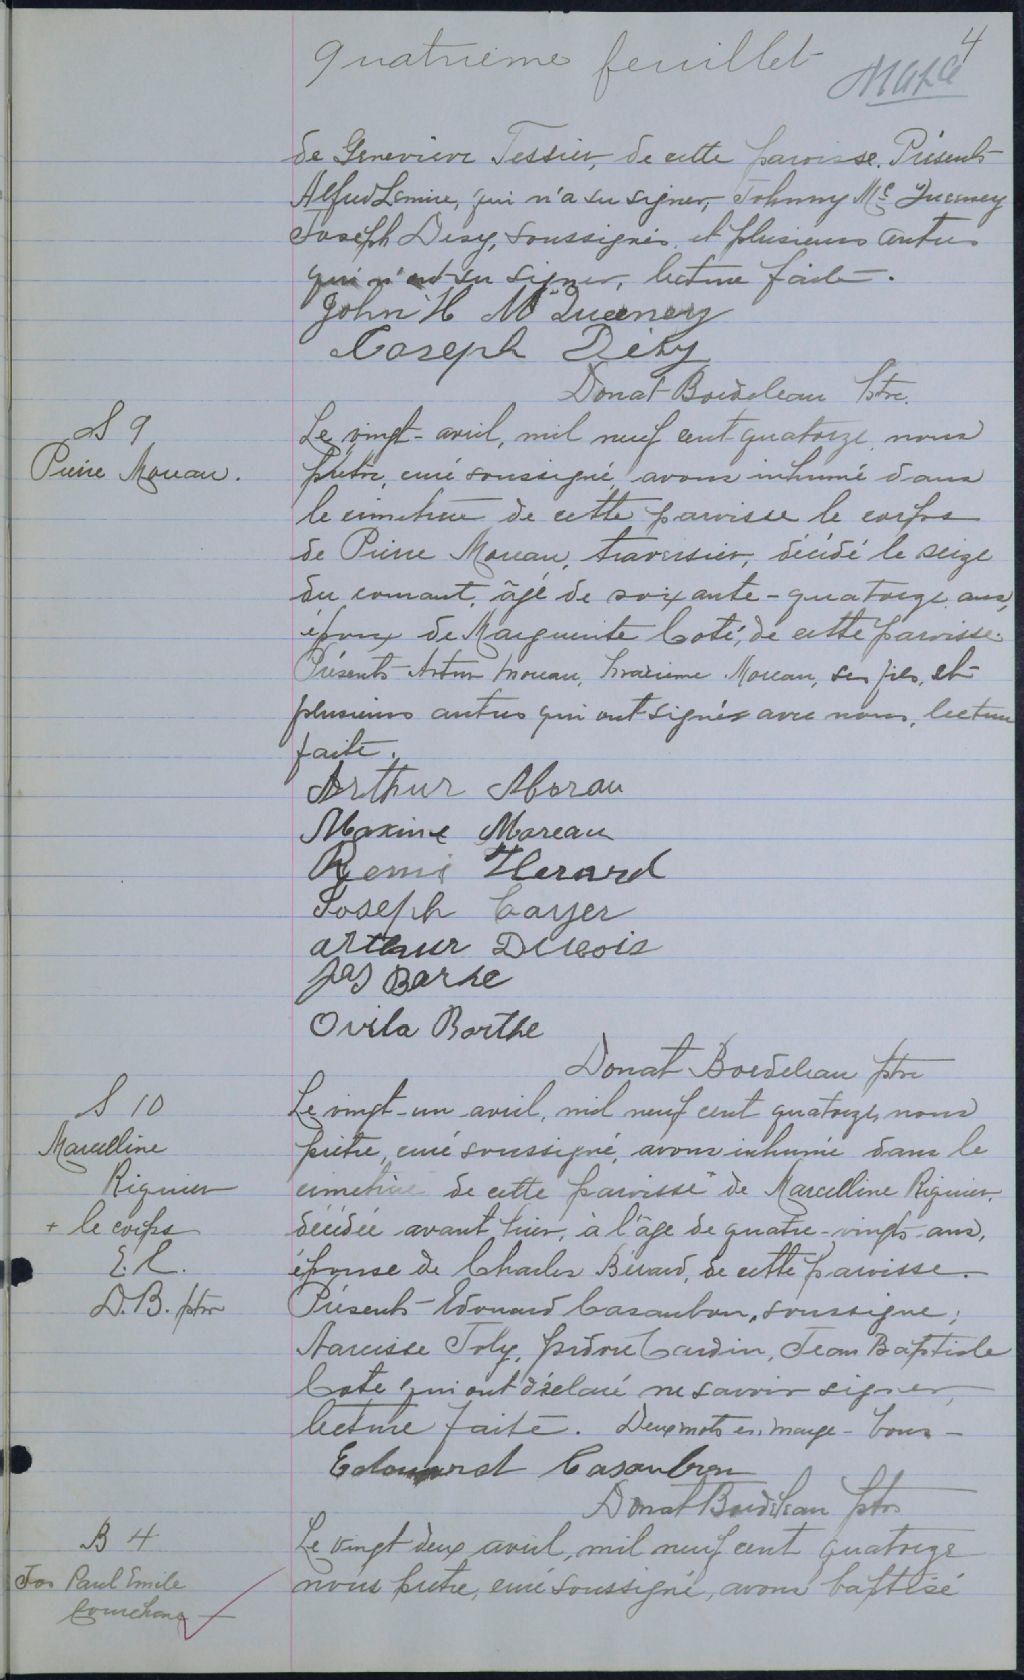 4
quatrième feuillet
de Genevieve Tessier, de cette paroisse. Présents
Alfred Lemire, qui n'a su signer, Johnny Mc Queeney
Joseph Desy, soussignés et plusieurs autres
qui n'ont su signer, lecture faite.
John H Mc Queeney
Joseph Désy
Donat Bordeleau ptre.
S 9
Pierre Moreau.
Le vingt-avril, mil neuf cent quatorze, nous
prêtre, curé soussigné, avons inhumé dans
le cimetière de cette paroisse le corps
de Pierre Moreau, traversier, décédé le seize
du courant, âgé de soixante-quatorze ans,
époux de Marguerite Coté, de cette paroisse.
Présents Artur Moreau, Moreau, ses fils, et
plusieurs autres qui ont signés avec nous, lecture
faite.
Arthur Morau
Maxime Moreau
Remi Herard
Joseph Cayer
arthur Dubois
Jos Barthe
Ovila Barthe
Donat Bordeleau ptre
S 10
Marcelline
Riguier
+ le corps
E. C.
D. B. ptre
Le vingt-un avril, mil neuf cent quatorze, nous
prêtre, curé soussigné, avons inhumé dans le
cimetière de cette paroisse + de Marcelline Riguier,
décédée avant hier, à l'âge de quatre-vingts ans,
épouse de Charles Bérard, de cette paroisse.
Présents Edouard Casaubon, soussigne;
Narcisse Joly, Cardin, Jean Baptiste
Cote qui ont déclaré ne savoir signer,
lecture faite. Deux mots en marge - bons -
Edouard Casaubon
Donat Bordeleau ptre
B 4
Jos Paul Emile
Courchene
Le vingt deux avril, mil neuf cent quatorze
nous prêtre, curé soussigné, avons baptisé